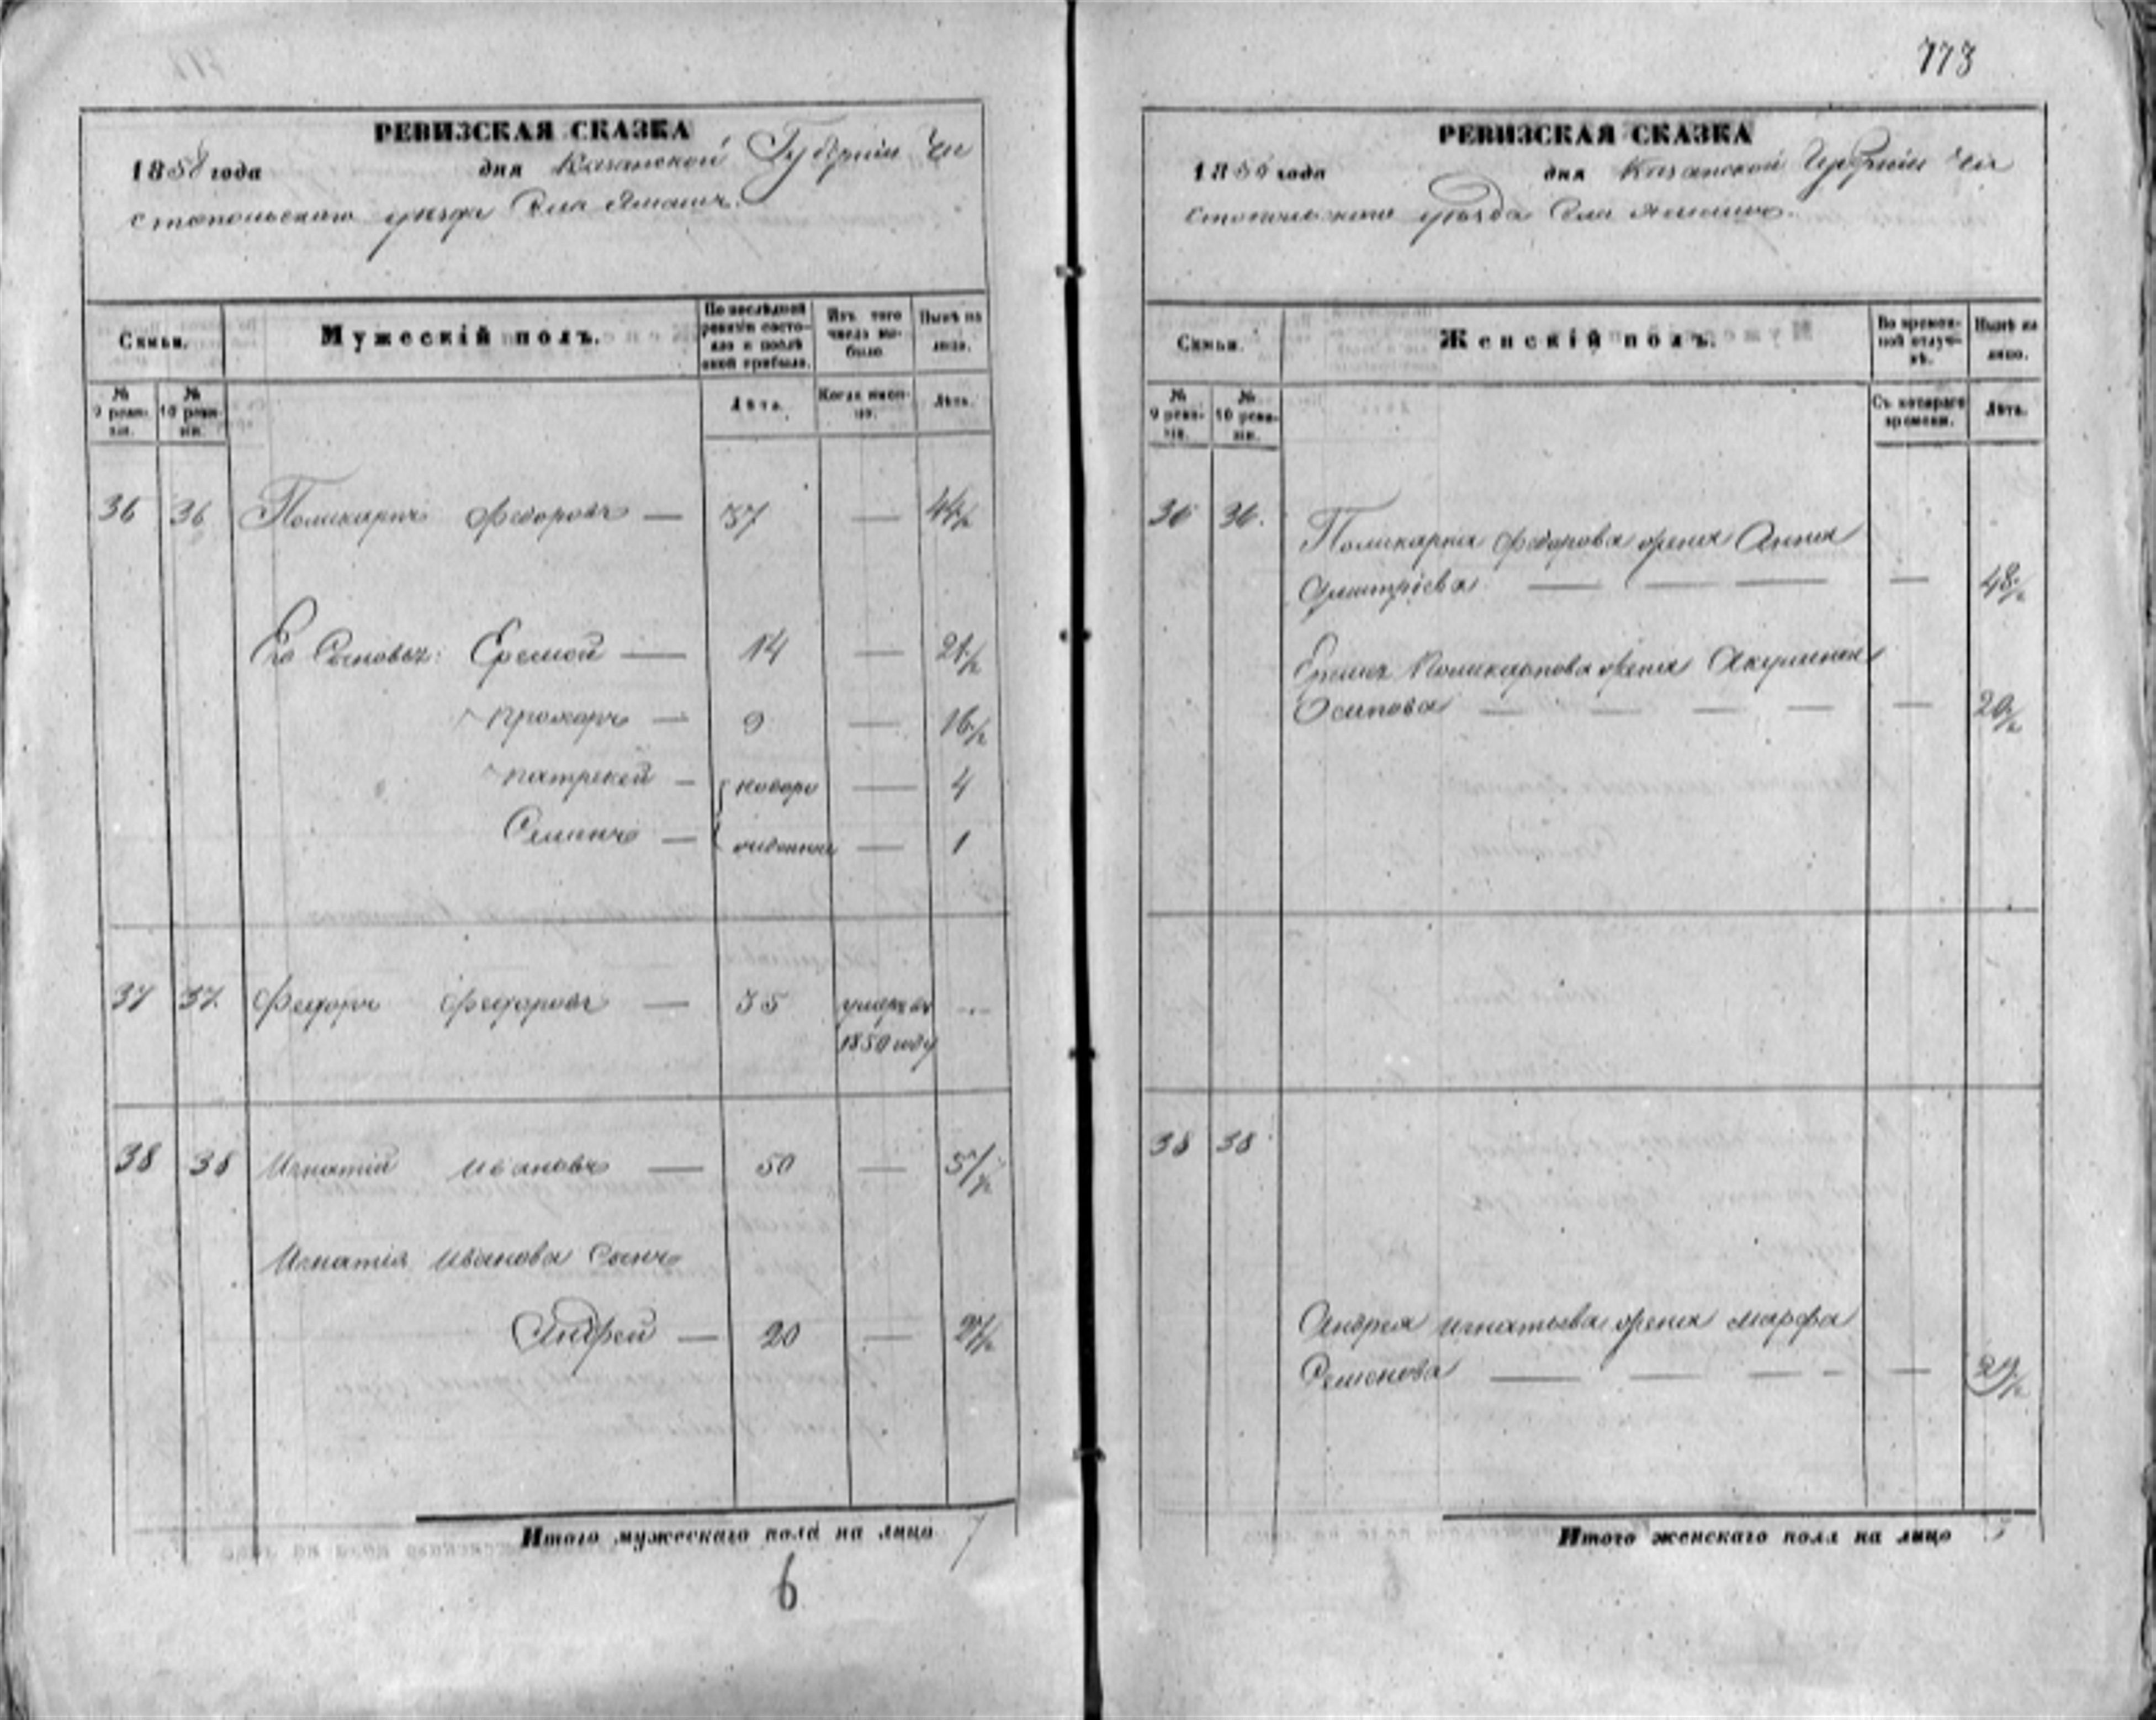 773
РЕВИЗСКАЯ СКАЗКА
1858 года дня Казанской Губерніи Чи
стопольскаго уѣзда Села Ямашъ.
Семьи.
Мужескій полъ.
По послѣдней ревизіи состояло и послѣ оной прибыло.
Изъ того числа выбыло.
Нынѣ на лицо.
№ 9 ревизіи.
№ 10 ревизіи.
Лѣта.
Когда именно.
Лѣта.
36 36 Поликарпъ Федоровъ — 37 — 44½
Его Сыновья: Еремей — 14 — 21½
Прохоръ — 9 — 16½
Патрекей — новоро — 4
Семинъ — жденные — 1
37 37 Федоръ Федоровъ — 35 умеръ въ
1850 году
38 38 Игнатій Ивановъ — 50 — 57½
Игнатія Иванова Сынъ
Андрей — 20 — 27½
Итого мужескаго пола на лицо 7
6
РЕВИЗСКАЯ СКАЗКА
1858 года дня Казанской Губерніи Чи
стопольскаго уѣзда Села Ямашъ.
Семьи.
Женскій полъ.
Во временной отлучкѣ.
Нынѣ на лицо.
№ 9 ревизіи.
№ 10 ревизіи.
Съ котораго времени.
Лѣта.
36 36. Поликарпа Федорова жена Анна
Дмитріева — — — — 48½
Еремея Поликарпова жена Акулина
Осипова — — — — — 20½
38 38
Андрея Игнатьева жена Марфа
Семенова — — — — —
Итого женскаго пола на лицо